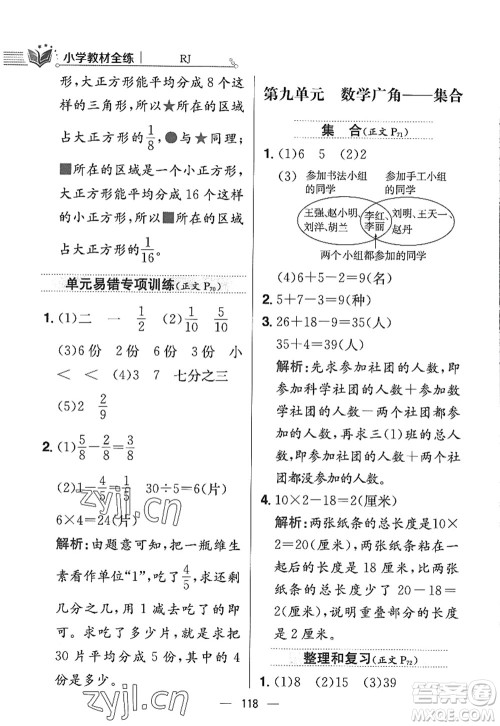 小学教材全练 RJ
形,大正方形能平均分成 8 个这
样的三角形,所以★所在的区域
占大正方形的1/8,●与★同理;
■所在的区域是小正方形,大正
方形能平均分成 16 个这样的
小正方形,所以■所在的区域
占大正方形的1/16。
单元易错专项训练(正文 P70)
1. (1)二 一 2/2 (2)1/5 4/5
(3)6 份 2 份 3 份 小
< < (4)3 7 七分之三
(5)2 2/9
2. (1)5/8-2/8=3/8
(2)1-4/5=1/5 30÷5=6(片)
6×4=24(片)
解析:由题意可知,把一瓶维生
素看作单位“1”,吃了4/5,求还剩
几分之几,用 1 减去吃了的几
分之几。求吃了多少片,就是把
30 片平均分成 5 份,其中的 4
份是多少片。
第九单元 数学广角——集合
集 合(正文 P71)
1. (1)6 5 (2)2
(3) 参加书法小组的同学 参加手工小组的同学
王强、赵小明、刘洋、胡兰 李红、李丽 刘明、王天一、赵丹
两个小组都参加的同学
(4)6+5-2=9(人)
2. 5+7-3=9(种)
3. 26+18-9=35(人)
35+4=39(人)
解析:先求参加社团的人数,即
参加科学社团的人数+参加文
学社团的人数-两个社团都参
加的人数,再求三(1)班的总人
数,即参加社团的人数+两个社
团都没参加的人数。
4. 10×2-18=2(厘米)
解析:两张纸条的总长度是10×
2=20(厘米),两张纸条粘在一
起后的长度是 18 厘米,比两张
纸条的总长度少 20-18=2(厘
米),说明重叠部分的长度
是 2 厘米。
整理和复习(正文 P72)
1. (1)8 (2)15 (3)39
118
zyjl.cn
zyjl.cn